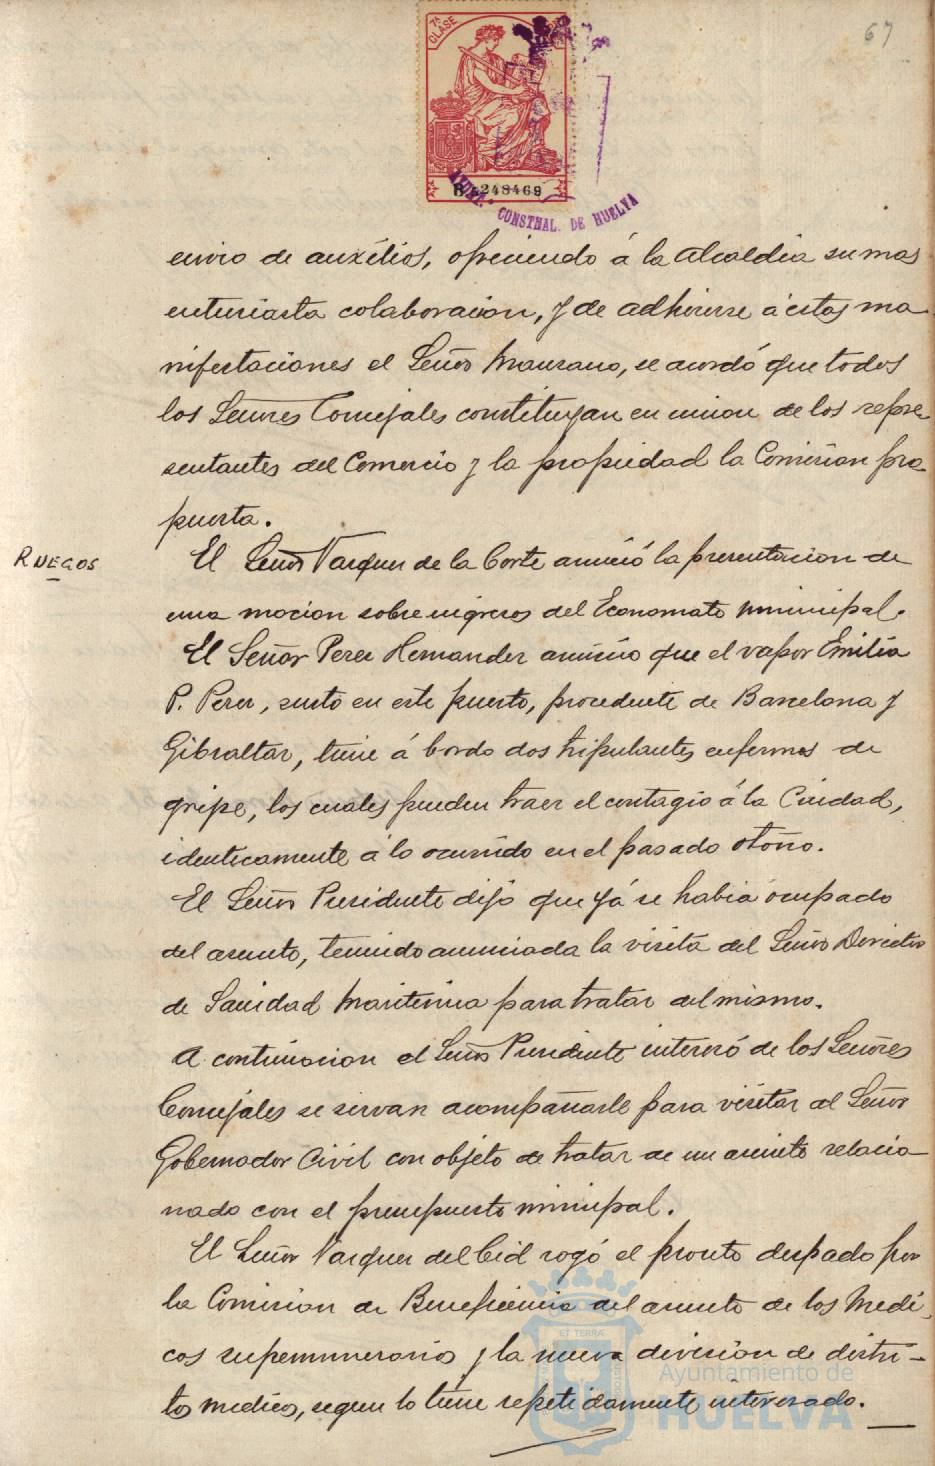 67
7ª CLASE
B 8248469
AYUN. CONSTNAL. DE HUELVA
envio de auxilios, ofreciendo á la Alcaldia su mas
entusiasta colaboracion, y de adherirse á estas ma
nifestaciones el Señor Manzano, se acordó que todos
los Señores Concejales constituyan en union de los repre
sentantes del Comercio y la propiedad la Comision pro
puesta.
RUEGOS
El Señor Vazquez de la Corte anunció la presentacion de
una mocion sobre ingresos del Economato municipal.
El Señor Perez Hernandez anuncio que el vapor Emilia
P. Perez, surto en este puerto, procedente de Barcelona y
Gibraltar, tiene á bordo dos tripulantes enfermos de
gripe, los cuales pueden traer el contagio á la Ciudad,
identicamente á lo ocurrido en el pasado otoño.
El Señor Presidente dijo que yá se habia ocupado
del asunto, teniendo anunciada la visita del Señor Director
de Sanidad Maritima para tratar del mismo.
A continuacion el Señor Presidente interesó de los Señores
Concejales se sirvan acompañarle para visitar al Señor
Gobernador Civil con objeto de tratar de un asunto relacio
nado con el presupuesto municipal.
El Señor Vazquez del Cid rogó el pronto despacho por
la Comision de Beneficencia del asunto de los Medi
cos supernumerarios y la nueva division de distri-
tos medicos, segun lo tiene repetidamente interesado.
ET TERRÆ
Ayuntamiento de
HUELVA